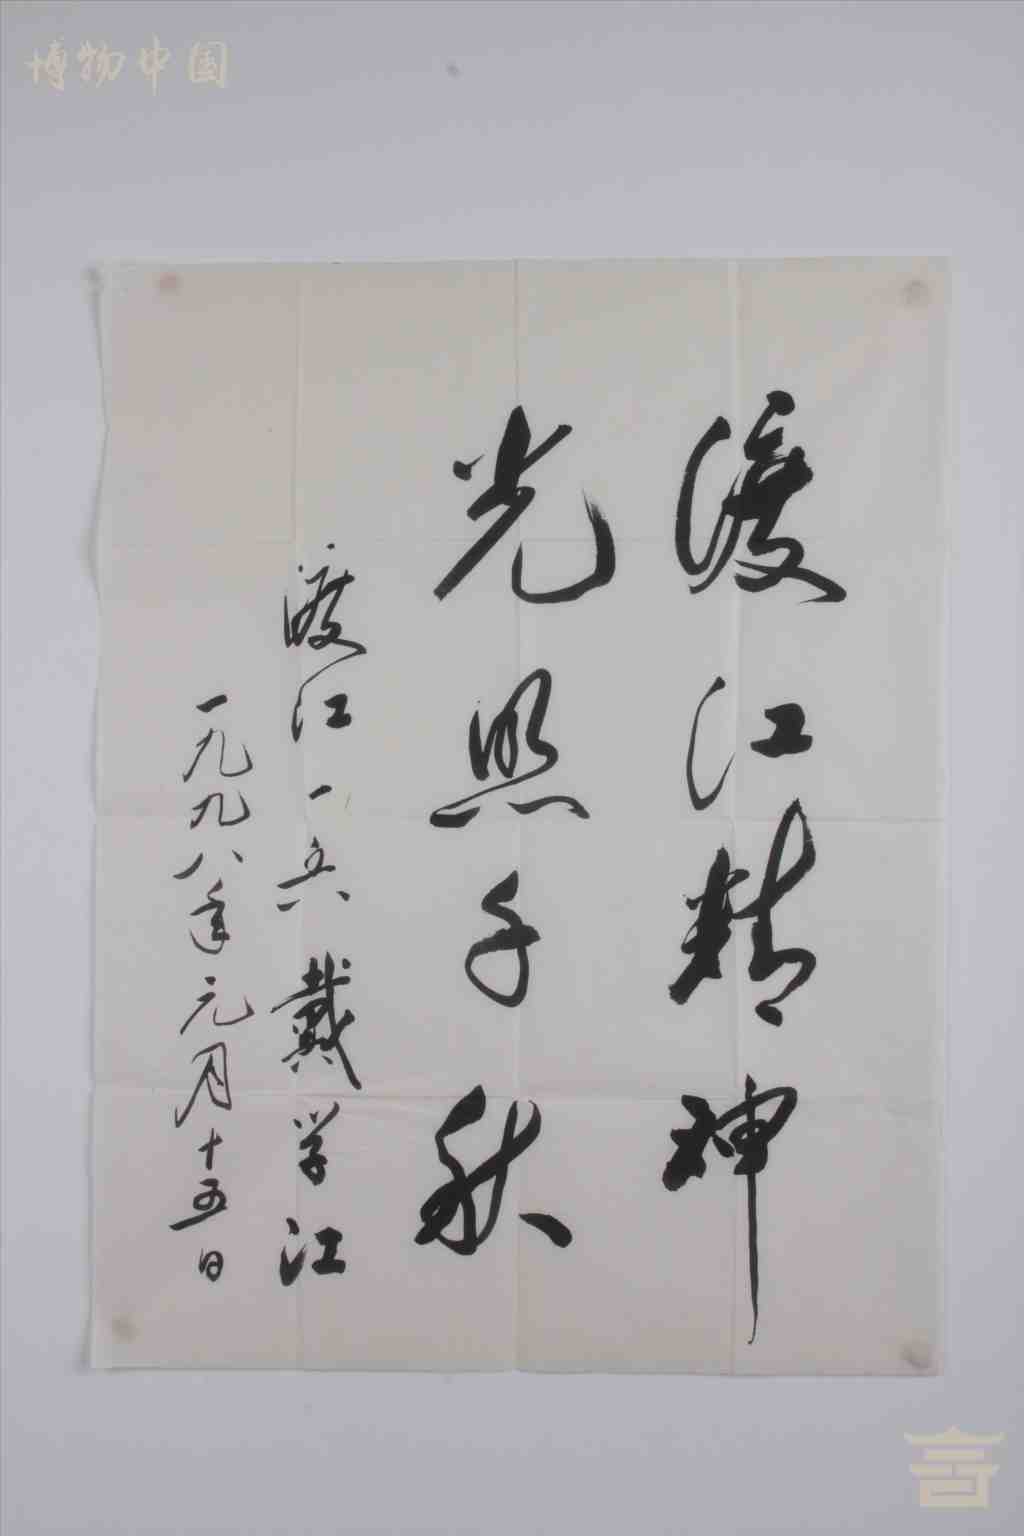 博物中国
渡江精神
光照千秋
渡江一兵戴学江
一九九八年元月十五日